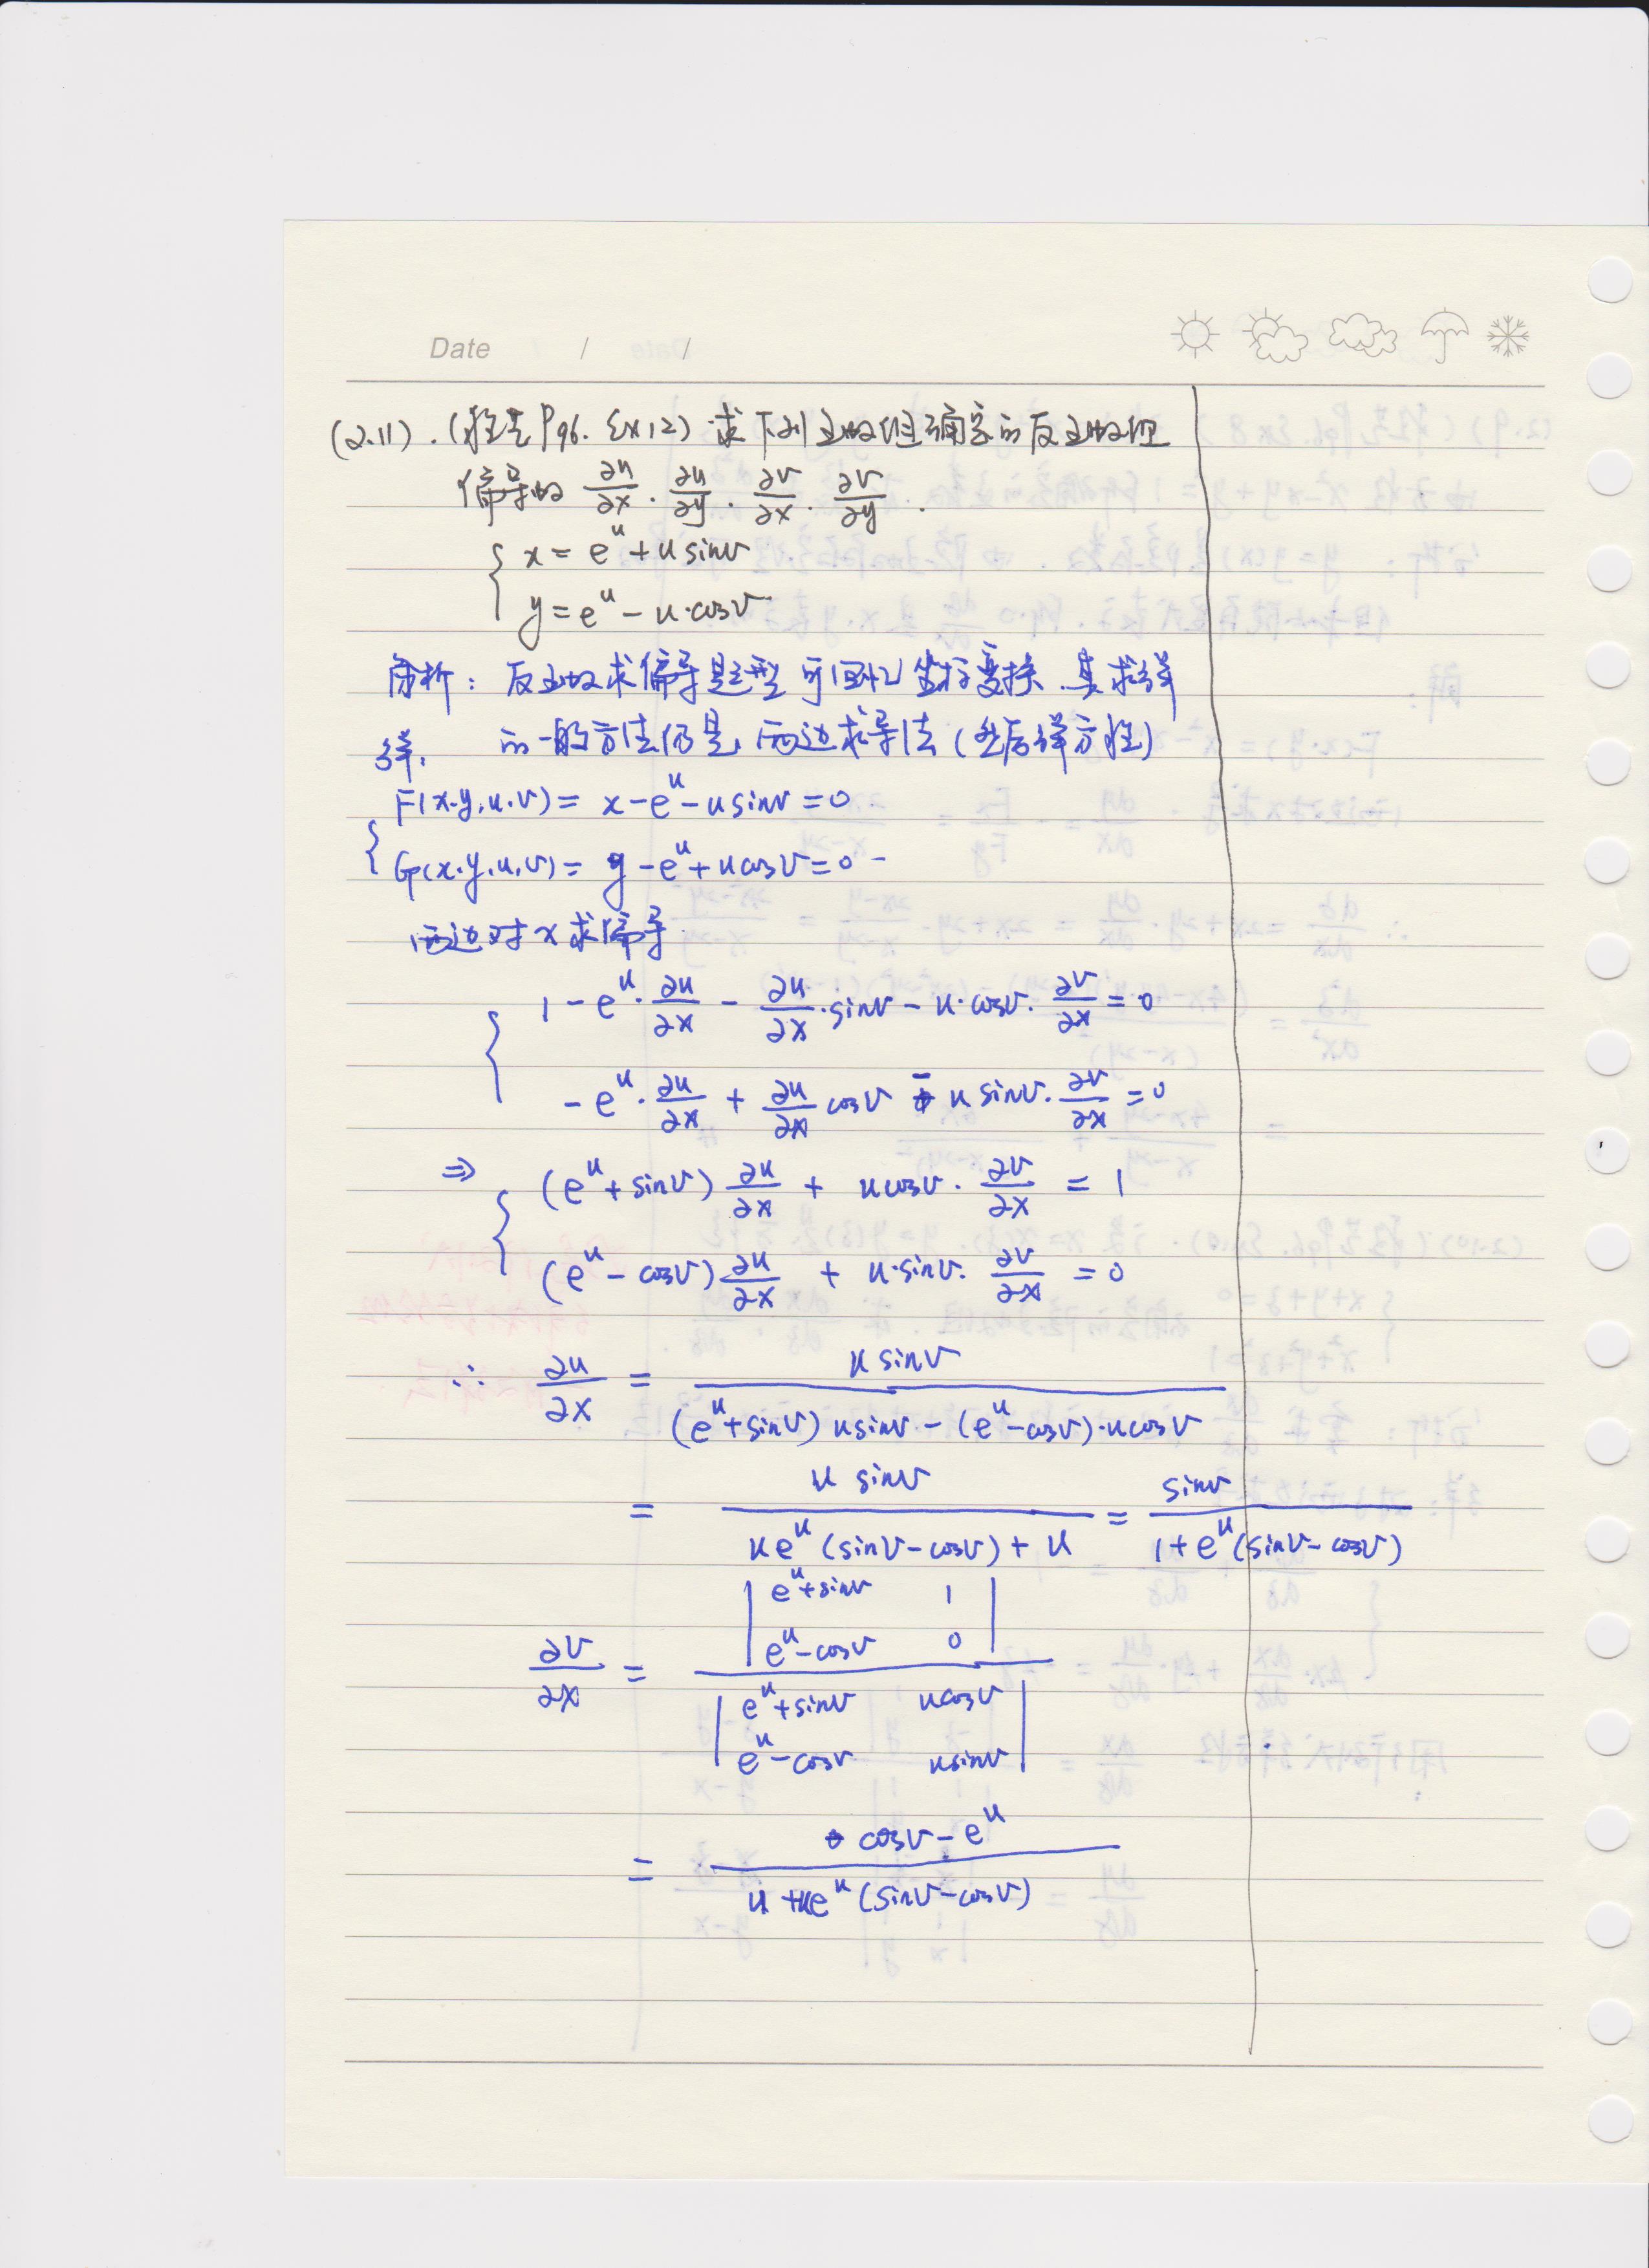 Date / /
(2.11). (程黄P96. Ex12) 求下列函数组确定的反函数组
偏导数 ∂u/∂x . ∂u/∂y . ∂v/∂x . ∂v/∂y .
{ x = e^u + u sinv
y = e^u - u·cosv
解析: 反函数求偏导是题型 可回忆坐标变换 其求解
的一般方法仍是, 两边求导法 (然后解方程)
解.
{ F(x.y.u.v) = x - e^u - u sinv = 0
G(x.y.u.v) = y - e^u + u cosv = 0
两边对x求偏导
{ 1 - e^u · ∂u/∂x - ∂u/∂x · sinv - u·cosv · ∂v/∂x = 0
- e^u · ∂u/∂x + ∂u/∂x cosv - u sinv · ∂v/∂x = 0
⇒ { (e^u + sinv) ∂u/∂x + u cosv · ∂v/∂x = 1
(e^u - cosv) ∂u/∂x + u·sinv · ∂v/∂x = 0
∴ ∂u/∂x = u sinv / ((e^u + sinv) u sinv - (e^u - cosv)·u cosv)
= u sinv / (u e^u (sinv - cosv) + u) = sinv / (1 + e^u (sinv - cosv))
∂v/∂x = | e^u + sinv 1 ; e^u - cosv 0 | / | e^u + sinv u cosv ; e^u - cosv u sinv |
= (cosv - e^u) / (u + u e^u (sinv - cosv))